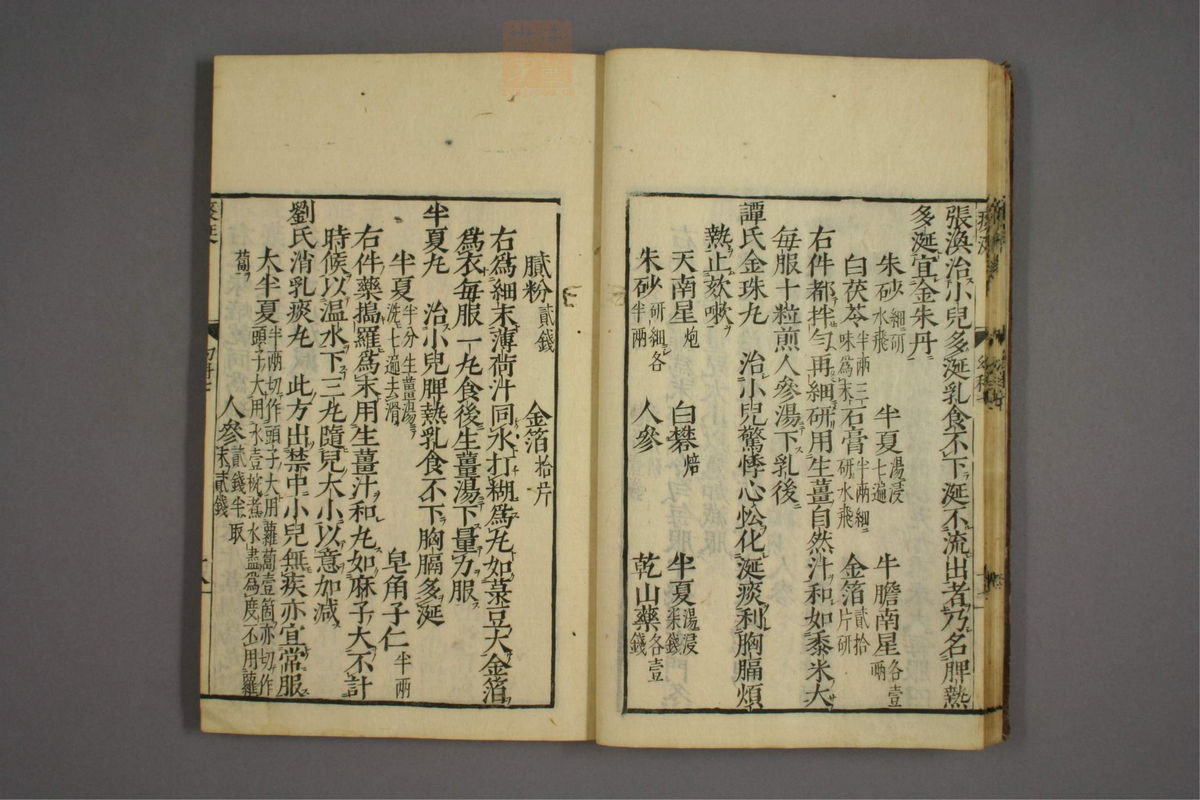 張渙治小兒多涎乳食不下涎不流出者乃名脾熱
多涎宜金朱丹
朱砂細研水飛　半夏湯浸七遍　牛膽南星各壹兩
白茯苓半兩三味爲末　石膏半兩細研水飛　金箔貳拾片研
右件都拌勻再細研用生薑自然汁和如黍米大
每服十粒煎人參湯下乳後
譚氏金珠丸　治小兒驚悸心忪化涎痰利胸膈煩
熱止欬嗽
天南星炮　白礬焙　半夏湯浸
朱砂研細各半兩　人參　乾山藥各壹錢
膩粉貳錢　金箔拾片
右爲細末薄荷汁同水打糊爲丸如菉豆大金箔
爲衣每服一丸食後生薑湯下量力服
半夏丸　治小兒脾熱乳食不下胸膈多涎
半夏半分生薑湯洗七遍去滑　皂角子仁半兩
右件藥搗羅爲末用生薑汁和丸如麻子大不計
時候以温水下三丸隨兒大小以意加減
劉氏消乳痰丸　此方出禁中小兒無疾亦宜常服
大半夏半兩切作頭子大用蘿蔔壹箇亦切作頭子大用水壹椀煮水盡爲度不用蘿
蔔　人參貳錢半取末貳錢